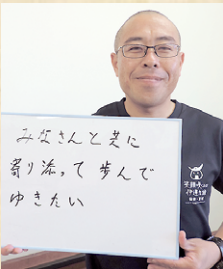 みなさんと共に
寄り添って歩んで
ゆきたい